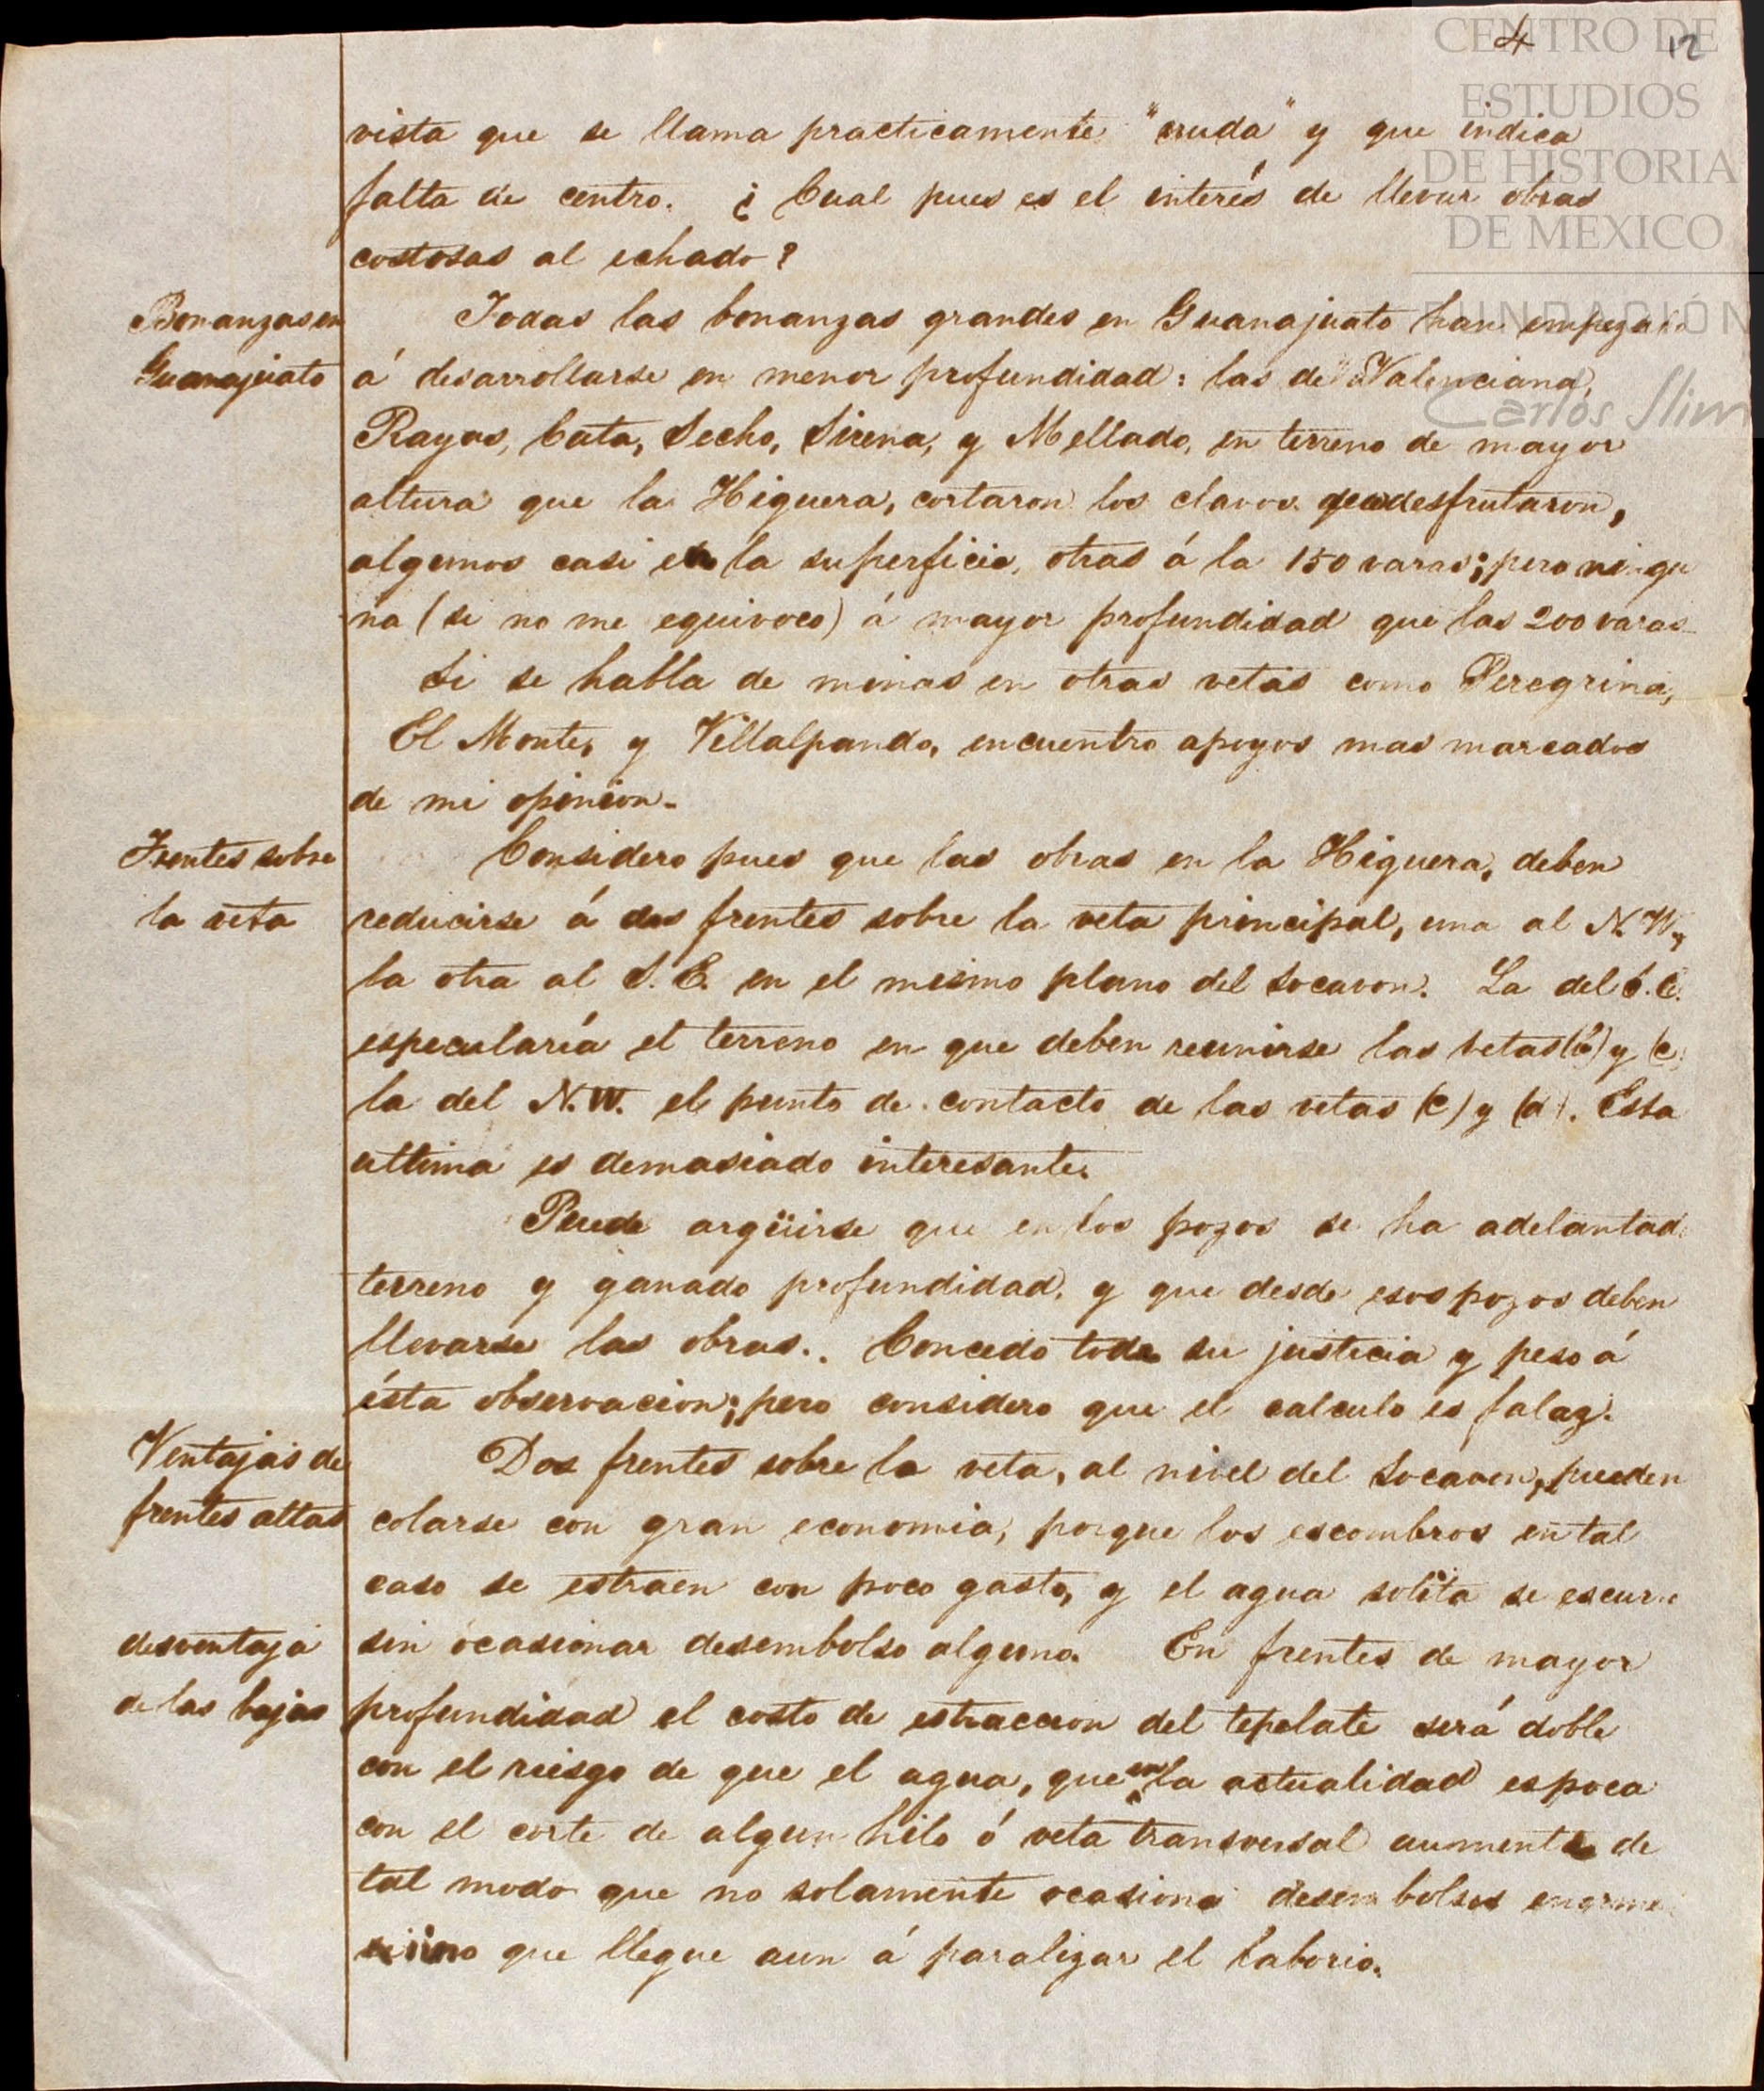 4 12
CENTRO DE
ESTUDIOS
DE HISTORIA
DE MEXICO
FUNDACIÓN
Carlos Slim
vista que se llama practicamente "cruda" y que indica
falta de centro. ¿Cual pues es el interés de llevar obras
costosas al echado?
Bonanzas en
Guanajuato
Todas las bonanzas grandes en Guanajuato han empezado
á desarrollarse en menor profundidad: las de Valenciana,
Rayas, Cata, Secho, Sirena, y Mellado, en terreno de mayor
altura que la Higuera, cortaron los clavos que desfrutaron,
algunos casi en la superficie, otras á la 150 varas; pero ningu
na (si no me equivoco) á mayor profundidad que las 200 varas
Si se habla de minas en otras vetas como Peregrina,
El Monte, y Villalpando, encuentro apoyos mas marcados
de mi opinion.
Frentes sobre
la veta
Considero pues que las obras en la Higuera, deben
reducirse á dos frentes sobre la veta principal, una al N.W,
la otra al S.E. en el mismo plano del socavon. La del S.E.
especularía el terreno en que deben reunirse las vetas (b) y (c)
la del N.W. el punto de contacto de las vetas (c) y (d). Esta
ultima es demasiado interesante.
Puede argüirse que en los pozos se ha adelantad
terreno y ganado profundidad, y que desde esos pozos deben
llevarse las obras.. Concedo toda su justicia y peso á
ésta observacion; pero considero que el calculo es falaz.
Ventajas de
frentes altas
Dos frentes sobre la veta, al nivel del socavon, pueden
colarse con gran economia, porque los escombros en tal
caso se estraen con poco gasto, y el agua solita se escurre
desventaja
de las bajas
sin ocasionar desembolso alguno. En frentes de mayor
profundidad el costo de estraccion del tepetate será doble
con el riesgo de que el agua, que en la actualidad es poca
con el corte de algun hilo ó veta transversal aumente de
tal modo que no solamente ocasione desembolsos enorme
sino que llegue aun á paralizar el laborio.